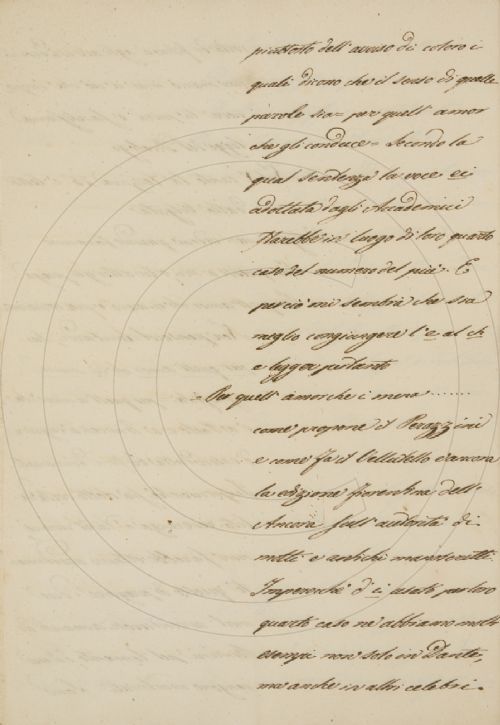 piuttosto dell' avviso di coloro i
quali dicono che il senso di quelle
parole sia = per quell' amor
che gli conduce = Secondo la
qual sentenza la voce ei
adottata dagli Accademici
starebbe in luogo di loro quarto
caso del numero del più. E
perciò mi sembra che sia
meglio congiungere l' e al ch
e legger pertanto
Per quell' amor che i mena ......
come propone il Perazzini
e come fa il Vellutello e ancora
la edizione fiorentina dell'
Ancora sull' autorità di
molti e antichi manoscritti.
Imperocchè d' i usato per loro
quarto caso ne abbiamo molti
esempi non solo in Dante,
ma anche in altri celebri